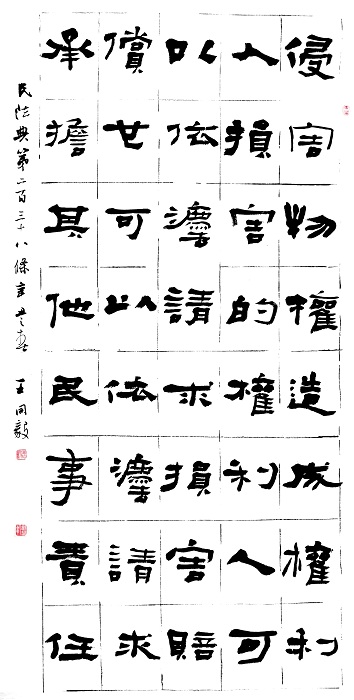 侵害物權造成權利
人損害的權利人可
以依灋請求損害賠
償也可以依灋請求
承擔其他民事責任
民法典第二百三十八條 王同毅